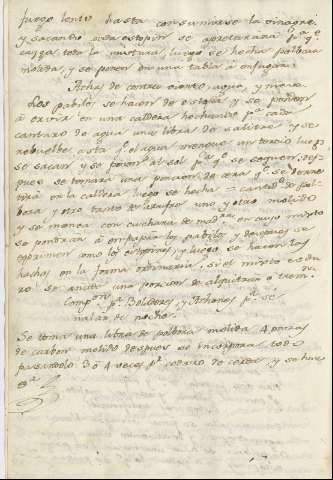 fuego lento hasta consumirse la vinagre,
y sacando este estopin se apretarara pª qe
exiga toda la mistura, luego se hecha polbora
molida, y se ponen en una tabla à enfugar.
Achas de contra viento, agua, y mar.
Los pabilos se hacen de estopa y se pondran
à ervir en una caldera hechando pª cada
cantaro de agua una libra de salitre y se
rebuelbe asta qe el agua mengue un tercio luego
se sacan y se ponen al sol pª qe se sequen, des-
pues se tomara una porcion de cera qe se derre-
tira en la caldera luego se hecha cantidd de pol-
bora y otro tanto de azufre uno y otro molido
y se menea con cuchara de madera en cuyo misto
se pondran à empapar los pabilos y despues se
esprimen como los estopines, y luego se hacen los
hachos en la forma ordinaria, si el misto es du
ro se añide una porcion de alquitran ò tremna
Compon pª Balones, y Achones pª se
ñalar de noche.
Se toma una libra de polbora molida 4 onzas
de carbon molido despues se incorpora todo
pasandolo 3 ò 4 veces pr cedazo de cerda, y se hume